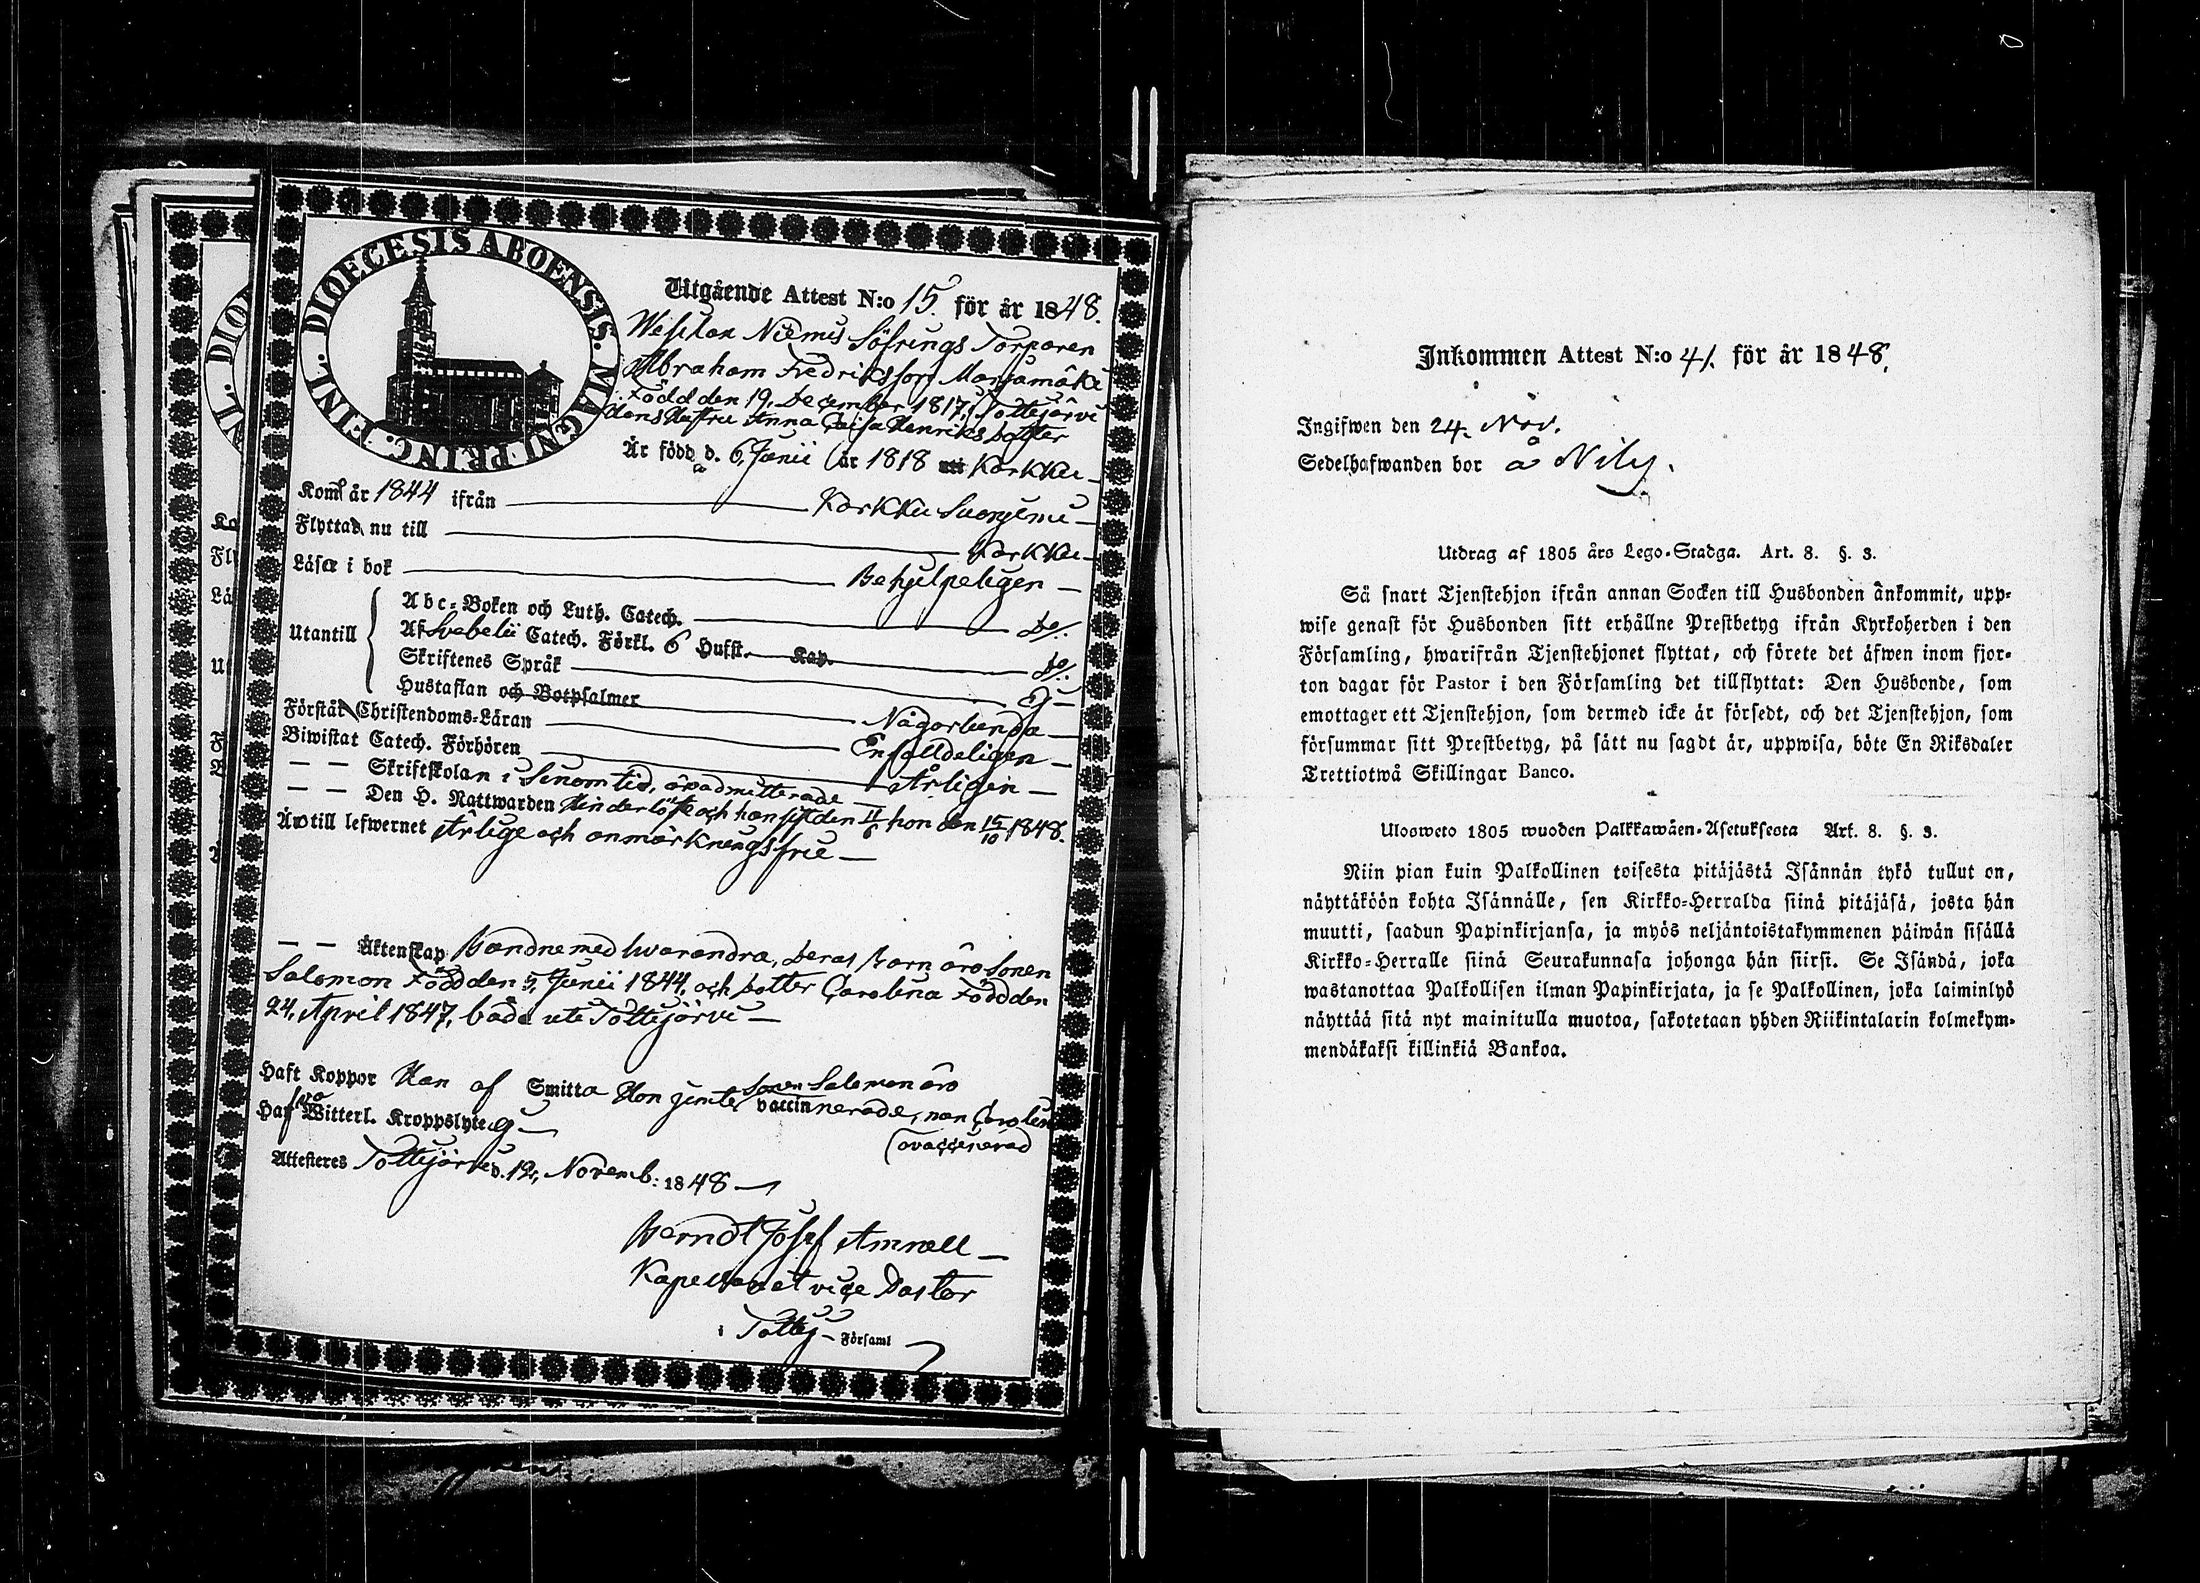 DIOECESIS ABOENSIS. MAGNI PRINC. FINL.
Utgående Attest N:o 15. för år 1848.
Niemis Söfrings Torparen
Abraham Fredriksson Mansamäki
Född den 19. December 1817, i Tottijärvi
dens Hustru Anna Caisa Henriks dotter
Är född d. 6, Junii år 1818 uti Karkku
Kom år 1844 ifrån Karkku Suoniemi
Flyttar nu till Karkku
Läser i bok Behjelpeligen
Utantill
Abc-Boken och Luth. Catech. do.
Af Svebelii Catech. Förkl. 6 Hufst. Kap. do.
Skriftenes Språk Ej
Hustaflan och Botpsalmer Någorlunda
Förstår Christendoms-Läran Enfalldeligen
Biwistat Catech. Förhören Årligen
— — Skriftskolan i sinom tid, äro admitterade
— — Den H. Nattwarden Hinderlöse och han sist den 11/6 hon den 15/10 1848.
Äro till lefwernet Ärlige och anmärkningsfrie
— — Äktenskap Bandne med hvarandra, Deras Barn äro Sonen
Salomon Född den 5, Junii 1844, och dotter Carolina Född den
24, April 1847, båda uti Tottijärvi
Haft Koppor Han af Smitta Hon jemte Sonen Salomon äro
vaccinnerade, men Carolina
Haf wa Witterl. Kroppslyte ej
ovaccinerad
Attesteres Tottijärvi d. 12, Novemb: 1848
Berndt Josef Amnell
Kapellan et vice Pastor
i Tottij Församl
Inkommen Attest N:o 41. för år 1848.
Ingifwen den 24. Nov.
Sedelhafwanden bor å Nily.
Utdrag af 1805 års Lego-Stadga. Art. 8. §. 3.
Så snart Tjenstehjon ifrån annan Socken till Husbonden ankommit, upp-
wise genast för Husbonden sitt erhållne Prestbetyg ifrån Kyrkoherden i den
Församling, hwarifrån Tjenstehjonet flyttat, och förete det äfwen inom fjor-
ton dagar för Pastor i den Församling det tillflyttat: Den Husbonde, som
emottager ett Tjenstehjon, som dermed icke är försedt, och det Tjenstehjon, som
försummar sitt Prestbetyg, på sätt nu sagdt är, uppwisa, böte En Riksdaler
Trettiotwå Skillingar Banco.
Ulosweto 1805 wuoden Palkkawäen-Asetuksesta Art. 8. §. 3.
Niin pian kuin Palkollinen toisesta pitäjästä Isännän tykö tullut on,
näyttäköön kohta Isännälle, sen Kirkko-Herralda siinä pitäjäsä, josta hän
muutti, saadun Papinkirjansa, ja myös neljäntoistakymmenen päiwän sisällä
Kirkko-Herralle siinä Seurakunnasa johonga hän siirsi. Se Isändä, joka
wastanottaa Palkollisen ilman Papinkirjata, ja se Palkollinen, joka laiminlyö
näyttää sitä nyt mainitulla muotoa, sakotetaan yhden Riikintalarin kolmekym-
mendäkaksi killinkiä Bankoa.